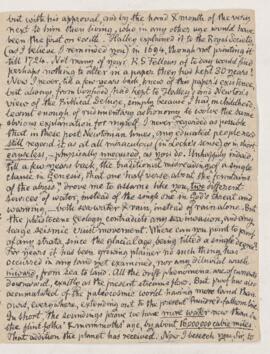 but with his approval, and by the hand & mouth of the very
next to him then living, who in any other age would have
been the first on earth. Halley explained it to the Royal Society
(as I believe I reminded you) in 1694, though not printing it
till 1724. Not many of your R S Fellows of to day would find
perhaps nothing to alter in a paper then has kept 30 years!
Now I never, till a few years back, knew of that paper's existence
but always from boyhood had kept to Halley's and Newton's
view of the Biblical Deluge, simply because I had
learned enough of rudimentary astronomy to evolve the same
obvious explanation, for myself. I never regarded as possible
that in these post Newtonian times, any educated people
still regard it as at all miraculous (in Locke's sense) or
causeless,
till a few years back, the traditional misreading of a single
clause in Genesis, that one half verse about "the fountains
of the abyss," drove me to assume like you, two different
sources of water, instead of the simple one in God's threat and
warning,
The pleistocene geology contradicts any sea invasion, and any
large seismic crust movement. Where can you point to part
of any strata, since the glacial age, being tilted a single degree?
For years it has been growing plainer no such thing has
occurred in any land yet examined, nor any diluvial wash
inward, from sea to land. All the drift phenomena are of currents
downward, exactly as the present streams flow. But proof has also
accumulated of the palaeocosmic world having more land than
ours, everywhere, extending out to the present hundred-fathom line
In short, the soundings prove we have more water now than in
the flint folks' & mammoths' age, by about 16,000,000 cubic miles.
That addition the planet has received. Now I beseech you, Sir, to